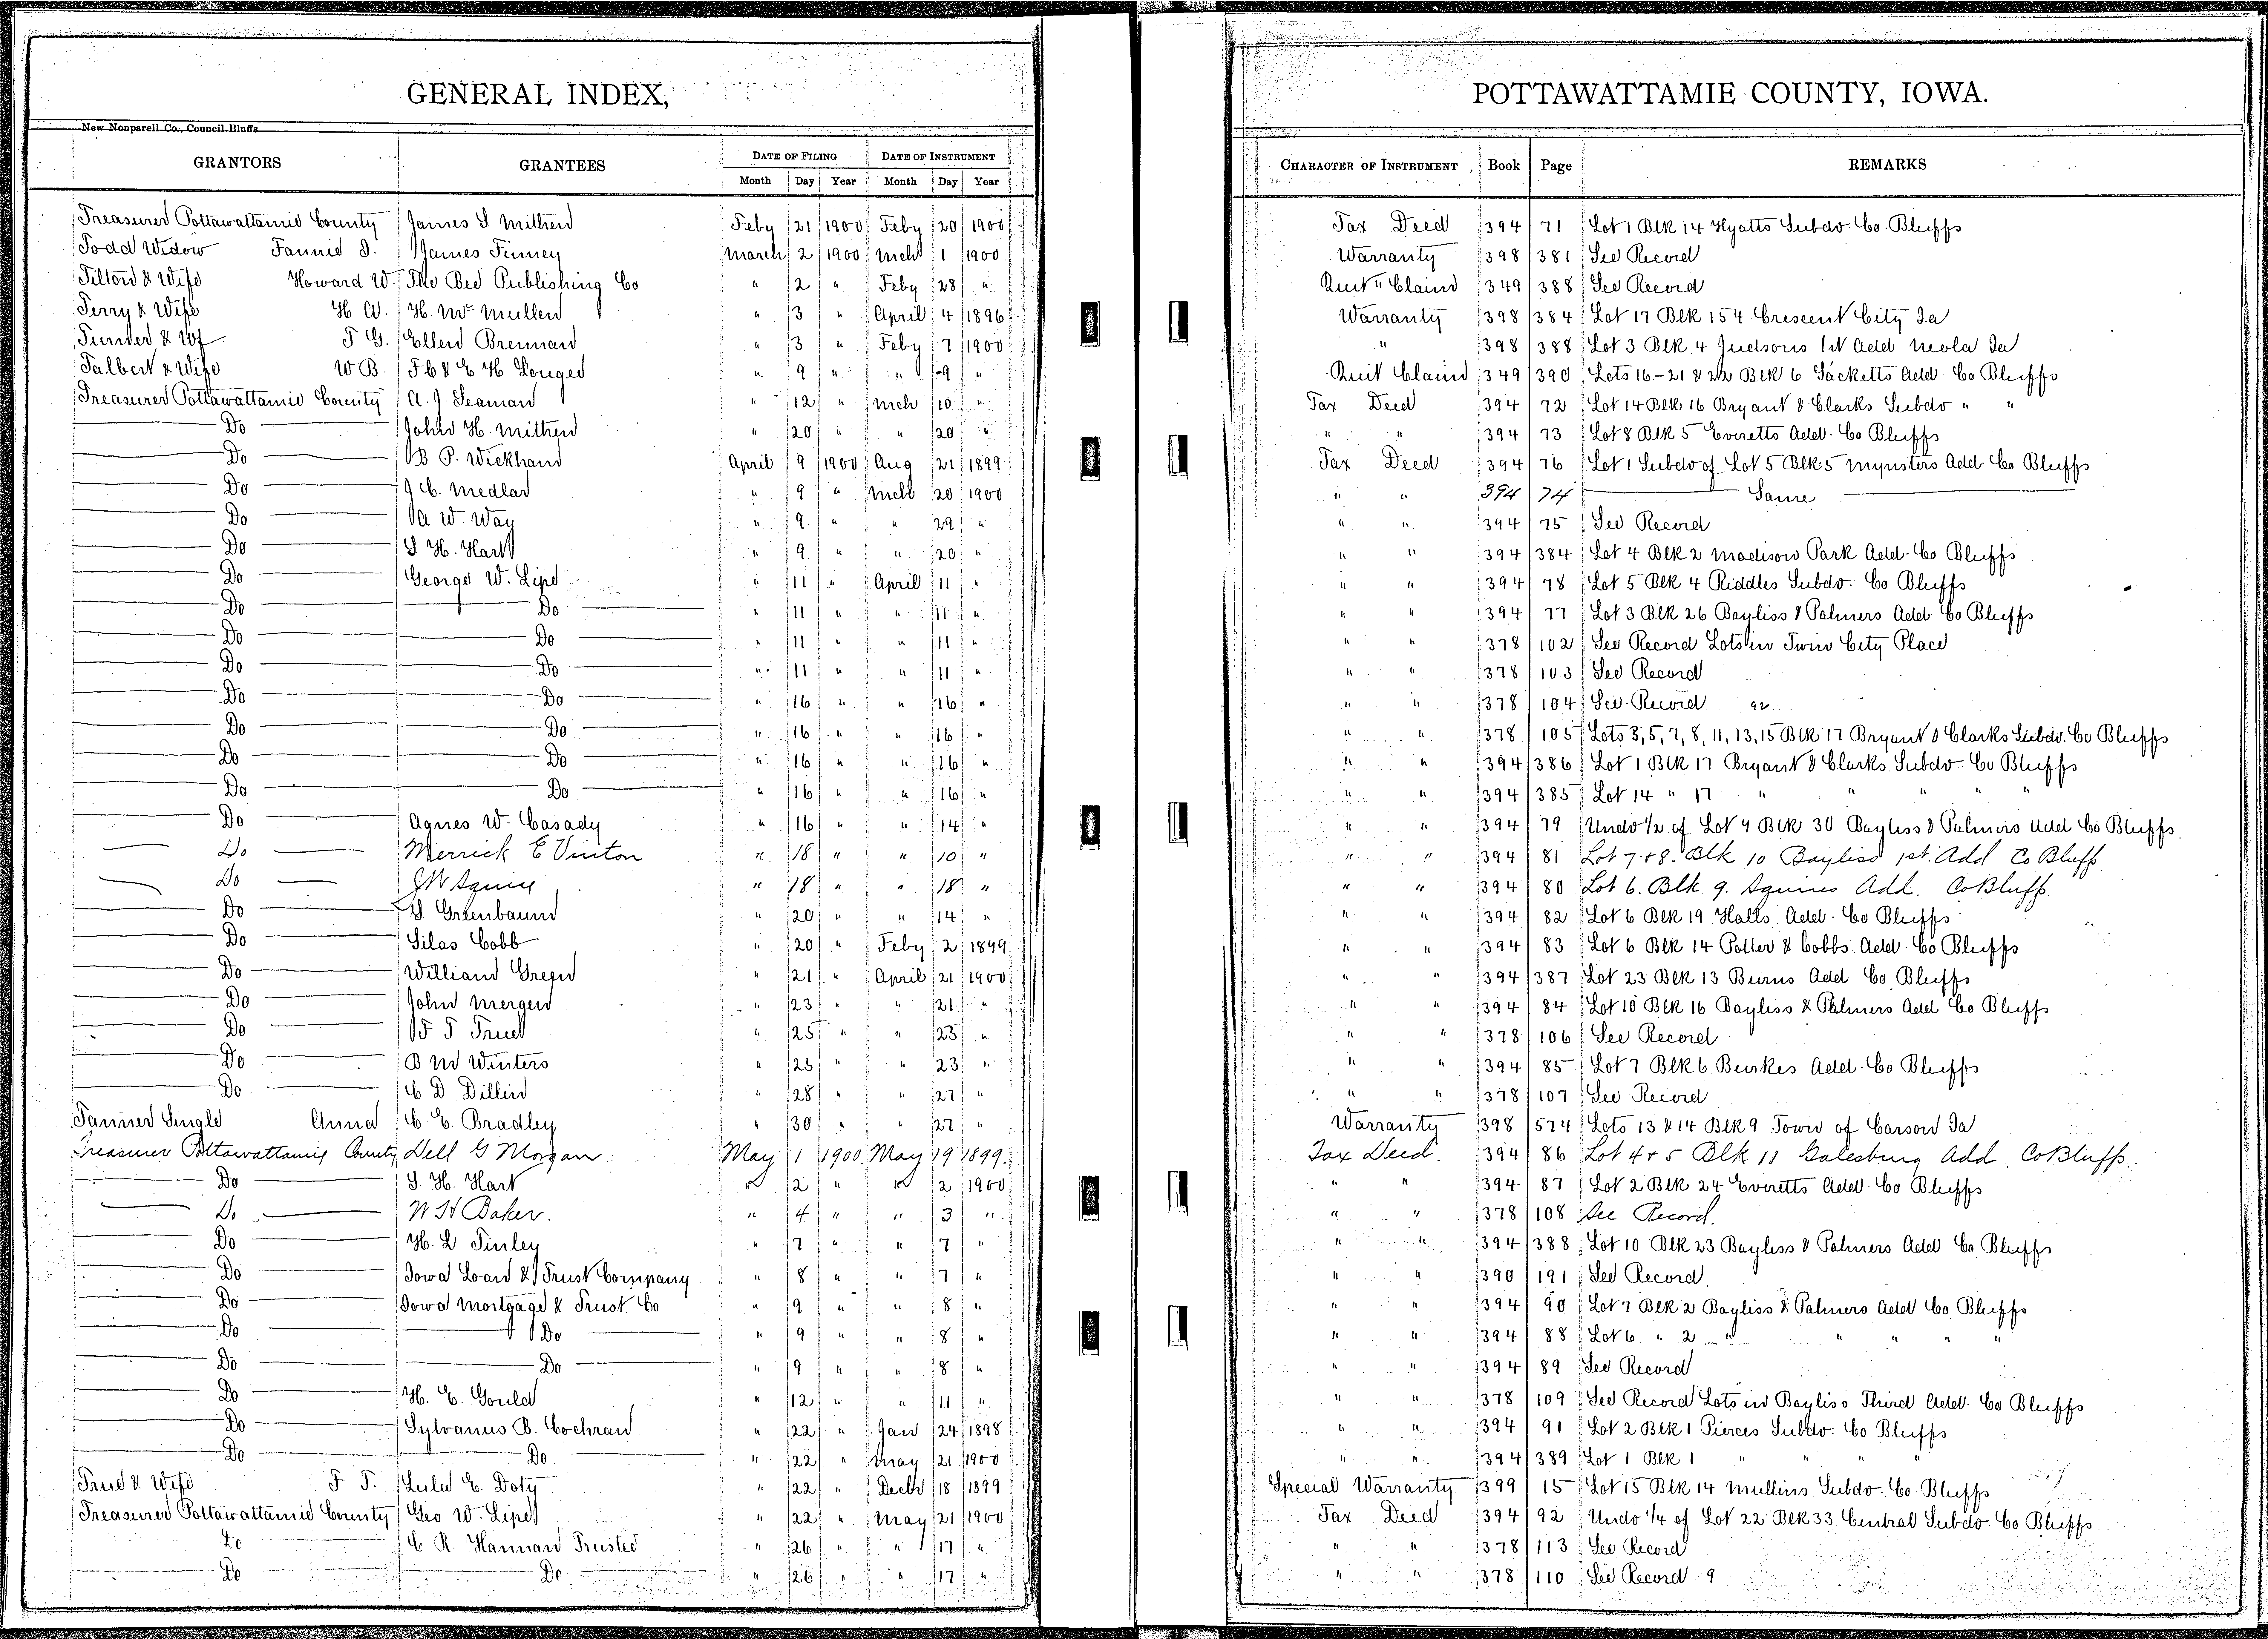 GENERAL INDEX,
New Nonpareil Co., Council Bluffs
GRANTORS GRANTEES DATE OF FILING DATE OF INSTRUMENT
Month Day Year Month Day Year
Treasurer Pottawattamie County James S. Mithen Feby 21 1900 Feby 20 1900
Todd Widow Fannie J. James Finney March 2 1900 Mch 1 1900
Tilton & Wife Howard W. The Bee Publishing Co " 2 " Feby 28 "
Terry & Wife H W. H. McMullen " 3 " April 4 1896
& Wf T G. Ellen Brennan " 3 " Feby 7 1900
Talbert & Wife W B. & E H Lougee " 9 " " 9 "
Treasurer Pottawattamie County A. J. Seaman " 12 " Mch 10 "
Do John H. Mithen " 20 " " 20 "
Do B P. Wickham April 9 1900 Aug 21 1899
Do J C. Medlar " 9 " Mch 20 1900
Do A W. Way " 9 " " 29 "
Do S H. Hart " 9 " " 20 "
Do George W. Lipe " 11 " April 11 "
Do Do " 11 " " 11 "
Do Do " 11 " " 11 "
Do Do " 11 " " 11 "
Do Do " 16 " " 16 "
Do Do " 16 " " 16 "
Do Do " 16 " " 16 "
Do Do " 16 " " 16 "
Do Agnes W. Casady " 16 " " 14 "
Do Merrick E Vinton " 18 " " 10 "
Do J W Squire " 18 " " 18 "
Do Greenbaum " 20 " " 14 "
Do Silas Cobb " 20 " Feby 2 1899
Do William Green " 21 " April 21 1900
Do John Mergen " 23 " " 21 "
Do F T True " 25 " " 23 "
Do B M Winters " 25 " " 23 "
Do C D Dillin " 28 " " 27 "
Tanner Single Anna C. E. Bradley " 30 " " 27 "
Treasurer Pottawattamie County Dell G Morgan. May 1 1900 May 19 1899
Do S. H. Hart " 2 " " 2 1900
Do W H Baker. " 4 " " 3 "
Do H. L Tinley " 7 " " 7 "
Do Iowa Loan & Trust Company " 8 " " 7 "
Do Iowa Mortgage & Trust Co " 9 " " 8 "
Do Do " 9 " " 8 "
Do Do " 9 " " 8 "
Do H. E. Gould " 12 " " 11 "
Do Sylvanus B. Cochran " 22 " Jan 24 1898
Do Do " 22 " May 21 1900
True & Wife F T. Lula E. Doty " 22 " Decbr 18 1899
Treasurer Pottawattamie County Geo W. Lipe " 22 " May 21 1900
Do C R. Hannan Trustee " 26 " " 17 "
Do Do " 26 " " 17 "
POTTAWATTAMIE COUNTY, IOWA.
CHARACTER OF INSTRUMENT Book Page REMARKS
Tax Deed 394 71 Lot 1 Blk 14 Hyatts Subdv. Co. Bluffs
Warranty 398 381 See Record
Quit Claim 349 388 See Record
Warranty 398 384 Lot 17 Blk 154 Crescent City Ia
" 398 388 Lot 3 Blk 4 Judsons 1st Add Neola Ia
Quit Claim 349 390 Lots 16-21 & 22 Blk 6 Sacketts Add. Co Bluffs
Tax Deed 394 72 Lot 14 Blk 16 Bryant & Clarks Subdv " "
" " 394 73 Lot 8 Blk 5 Everetts Add. Co Bluffs
Tax Deed 394 76 Lot 1 Subdv of Lot 5 Blk 5 Mynsters Add Co Bluffs
" " 394 74 Same
" " 394 75 See Record
" " 394 384 Lot 4 Blk 2 Madison Park Add. Co Bluffs
" " 394 78 Lot 5 Blk 4 Riddles Subdv. Co Bluffs
" " 394 77 Lot 3 Blk 26 Bayliss & Palmers Add Co Bluffs
" " 378 102 See Record Lots in Twin City Place
" " 378 103 See Record
" " 378 104 See Record
" " 378 105 Lots 3, 5, 7, 8, 11, 13, 15 Blk 17 Bryant & Clarks Subdv. Co Bluffs
" " 394 386 Lot 1 Blk 17 Bryant & Clarks Subdv. Co Bluffs
" " 394 385 Lot 14 " 17 " " " "
" " 394 79 Undv 1/2 of Lot 4 Blk 30 Bayliss & Palmers Add Co Bluffs.
" " 394 81 Lot 7 + 8. Blk 10 Bayliss 1st. Add Co Bluff.
" " 394 80 Lot 6. Blk 9. Squires Add. Co Bluff.
" " 394 82 Lot 6 Blk 19 Halls Add. Co Bluffs
" " 394 83 Lot 6 Blk 14 Potter & Cobbs Add. Co Bluffs
" " 394 387 Lot 23 Blk 13 Beirns Add Co Bluffs
" " 394 84 Lot 10 Blk 16 Bayliss & Palmers Add Co Bluffs
" " 378 106 See Record
" " 394 85 Lot 7 Blk 6 Burkes Add. Co Bluffs
" " 378 107 See Record
Warranty 398 574 Lots 13 & 14 Blk 9 Town of Carson Ia
Tax Deed. 394 86 Lot 4 + 5 Blk 11 Galesburg Add. Co Bluff.
" " 394 87 Lot 2 Blk 24 Everetts Add. Co Bluffs
" " 378 108 See Record.
" " 394 388 Lot 10 Blk 23 Bayliss & Palmers Add Co. Bluffs
" " 390 191 See Record.
" " 394 90 Lot 7 Blk 2 Bayliss & Palmers Add. Co. Bluffs
" " 394 88 Lot 6 " 2 " " " "
" " 394 89 See Record
" " 378 109 See Record Lots in Bayliss Third Add. Co Bluffs
" " 394 91 Lot 2 Blk 1 Pierces Subdv. Co Bluffs
" " 394 389 Lot 1 Blk 1 " " "
Special Warranty 399 15 Lot 15 Blk 14 Mullins Subdv. Co. Bluffs
Tax Deed 394 92 Undv 1/4 of Lot 22 Blk 33 Central Subdv. Co Bluffs
" " 378 113 See Record
" " 378 110 See Record 9